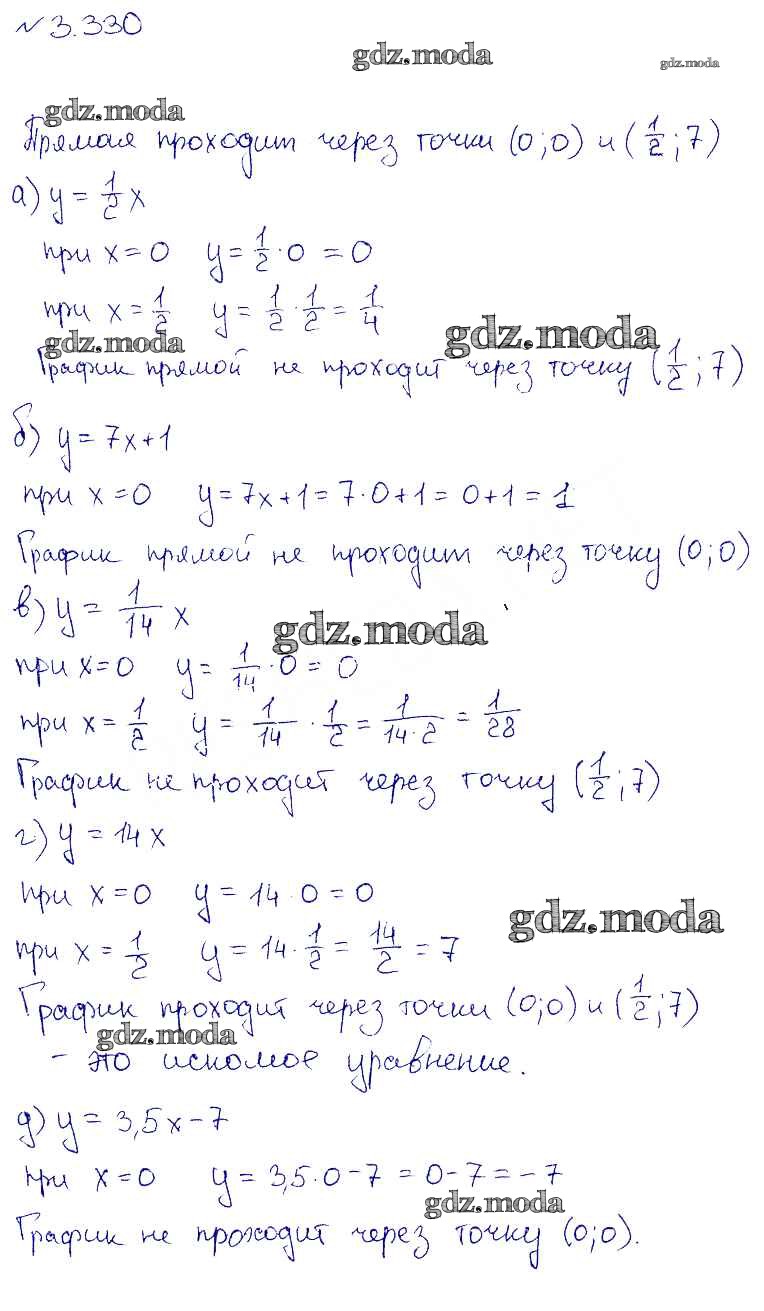 № 3.330
gdz.moda
gdz.moda
gdz.moda
Прямая проходит через точки (0;0) и (1/2;7)
а) y = 1/2 x
при x = 0 y = 1/2 · 0 = 0
при x = 1/2 y = 1/2 · 1/2 = 1/4
gdz.moda
gdz.moda
График прямой не проходит через точку (1/2;7)
б) y = 7x+1
при x = 0 y = 7x+1 = 7·0+1 = 0+1 = 1
График прямой не проходит через точку (0;0)
в) y = 1/14 x
gdz.moda
при x = 0 y = 1/14 · 0 = 0
при x = 1/2 y = 1/14 · 1/2 = 1/14·2 = 1/28
График не проходит через точку (1/2;7)
г) y = 14x
при x = 0 y = 14·0 = 0
gdz.moda
при x = 1/2 y = 14 · 1/2 = 14/2 = 7
График проходит через точки (0;0) и (1/2;7)
gdz.moda
- это искомое уравнение.
д) y = 3,5x-7
при x = 0 y = 3,5·0-7 = 0-7 = -7
gdz.moda
График не проходит через точку (0;0).